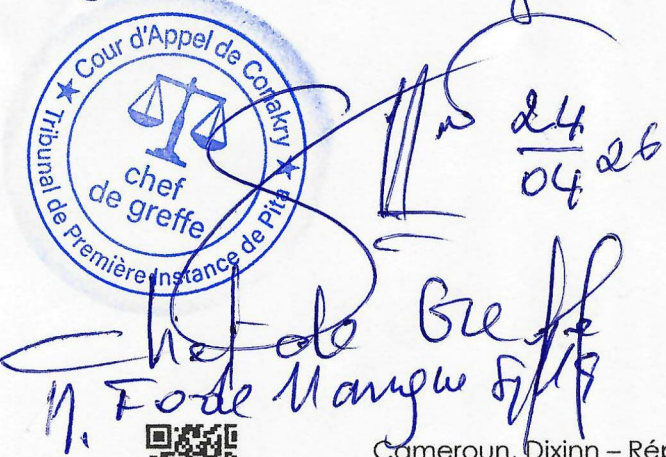 Cour d'Appel de Conakry
Tribunal de Première Instance de Pita
chef
de greffe
24
04 26
Chef de Greffe
M. Fodé
Cameroun, Dixinn – Rép